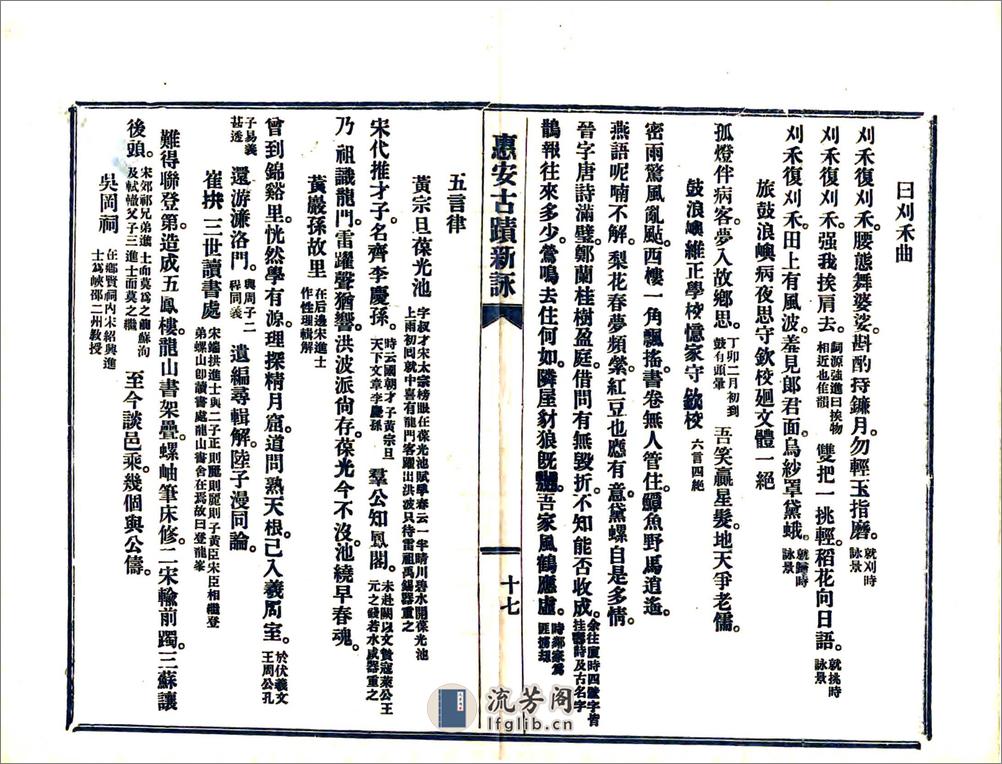 曰刈禾曲
刈禾復刈禾。腰態舞婆娑。斟酌持鐮月。勿輕玉指磨。就刈時詠景
刈禾復刈禾。强我挨肩去。詞源强進曰挨物相近也隹韻 雙把一挑輕。稻花向日語。就挑時詠景
刈禾復刈禾。田上有風波。羞見郎君面。烏紗罩黛蛾。就歸時詠景
旅鼓浪嶼病夜思守欽校廻文體一絕
孤燈伴病客。夢入故鄉思。丁卯二月初到鼓有頭暈 吾笑贏星髮。地天爭老儒。
鼓浪嶼維正學校憶家守欽校 六言四絕
密雨驚風亂颭。西樓一角飄搖。書卷無人管住。蟫魚野馬逍遙。
燕語呢喃不解。梨花春夢頻縈。紅豆也應有意。黛螺自是多情。
晉字唐詩滿壁。鄭蘭桂樹盈庭。借問有無毀折。不知能否收成。余往廈時四壁字皆挂詩及古名字
鵲報往來多少。鶯鳴去住何如。隣屋豺狼旣。吾家風鶴應虛。時鄉家為匪擄劫
惠安古蹟新詠
十七
五言律
黃宗旦葆光池 字叔才宋太宗榜眼在葆光池賦學春云一半晴川碧水開葆光池上雨初回就中喜有龍門客躍出洪波只待雷祖禹錫器重之
宋代推才子。名齊李慶孫。時云國朝才子黃宗旦天下文章李慶孫 羣公知鳳閣。未赴闕以文贄寇萊公王元之發若水咸器重之
乃祖識龍門。雷躍聲猶響。洪波派尙存。葆光今不沒。池繞早春魂。
黃嚴孫故里 在后邊宋進士作性理輯解
曾到錦谿里。恍然學有源。理探精月窟。道問熟天根。己入義周室。於伏羲文王周公孔
子易義甚透 還游濂洛門。與周子二程同義 遺編尋輯解。陸子漫同論。
崔拱 三世讀書處 宋端拱進士與二子正則麗則子黃臣宋臣相繼登弟螺山卽讀書處龍山書舍在焉故曰登龍峯
難得聯登第。造成五鳳樓。龍山書架疊。螺岫筆床修。二宋輸前躅。三蘇讓
後頭。宋郊祁兄弟進士而莫爲之前蘇洵及軾轍父子三進士而莫之繼 至今談邑乘。幾個與公儔。
吳岡祠 在鄉賢祠内宋紹興進士爲峽邵二州敎授
流芳阁
lfglib.cn